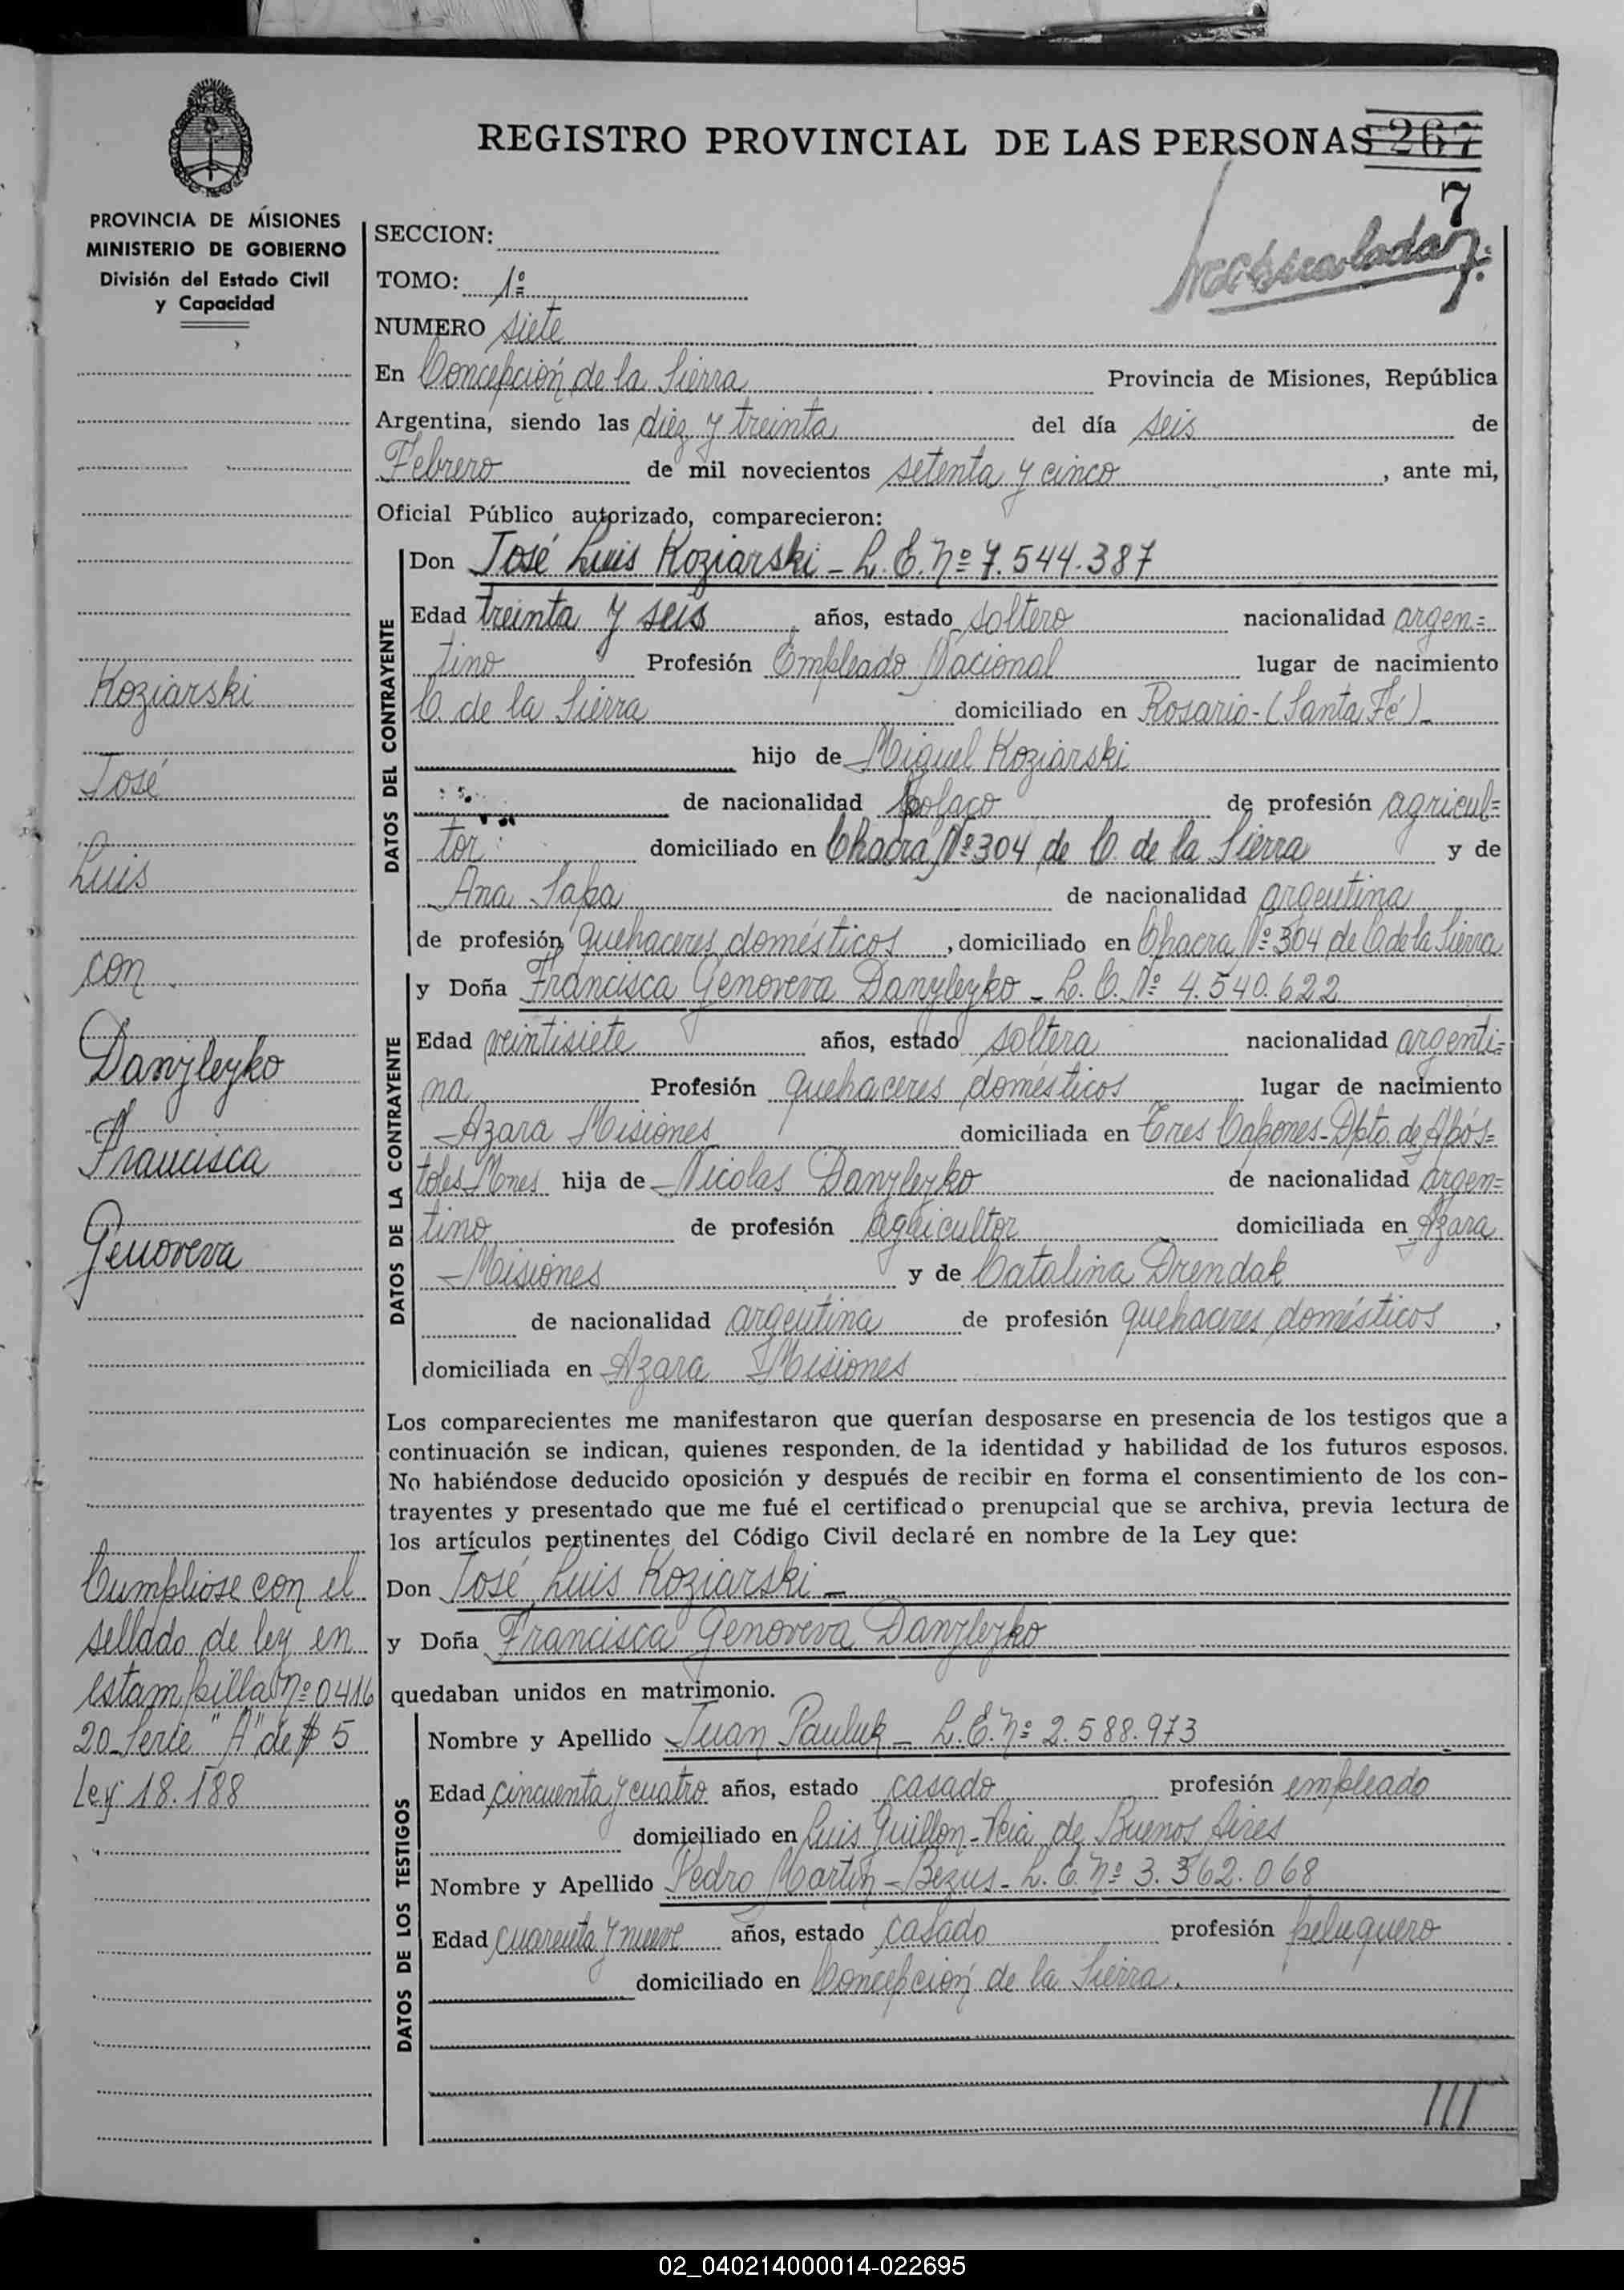 REGISTRO PROVINCIAL DE LAS PERSONAS 267
7
PROVINCIA DE MISIONES
MINISTERIO DE GOBIERNO
División del Estado Civil
y Capacidad
SECCION:
TOMO: 1º
NUMERO siete
En Concepción de la Sierra Provincia de Misiones, República
Argentina, siendo las diez y treinta del día seis de
Febrero de mil novecientos setenta y cinco, ante mi,
Oficial Público autorizado, comparecieron:
DATOS DEL CONTRAYENTE
Don José Luis Koziarski - L. E. Nº 7.544.387
Edad treinta y seis años, estado soltero nacionalidad argen=
tino Profesión Empleado Nacional lugar de nacimiento
C. de la Sierra domiciliado en Rosario - (Santa Fé) -
hijo de Miguel Koziarski
de nacionalidad polaco de profesión agricul=
tor domiciliado en Chacra Nº 304 de C. de la Sierra y de
Ana Sapa de nacionalidad argentina
de profesión quehaceres domésticos, domiciliado en Chacra Nº 304 de C. de la Sierra
DATOS DE LA CONTRAYENTE
y Doña Francisca Genoveva Danyleyko - L. C. Nº 4.540.622
Edad veintisiete años, estado soltera nacionalidad argenti=
na Profesión quehaceres domésticos lugar de nacimiento
Azara Misiones domiciliada en Tres Capones - Dpto. de Após=
toles Mnes hija de Nicolas Danyleyko de nacionalidad argen=
tino de profesión agricultor domiciliada en Azara
Misiones y de Catalina Drendak
de nacionalidad argentina de profesión quehaceres domésticos,
domiciliada en Azara Misiones
Los comparecientes me manifestaron que querían desposarse en presencia de los testigos que a
continuación se indican, quienes responden, de la identidad y habilidad de los futuros esposos.
No habiéndose deducido oposición y después de recibir en forma el consentimiento de los con-
trayentes y presentado que me fué el certificado prenupcial que se archiva, previa lectura de
los artículos pertinentes del Código Civil declaré en nombre de la Ley que:
Don José Luis Koziarski -
y Doña Francisca Genoveva Danyleyko
quedaban unidos en matrimonio.
DATOS DE LOS TESTIGOS
Nombre y Apellido Juan Pauluk - L. E. Nº 2.588.973
Edad cincuenta y cuatro años, estado casado profesión empleado
domiciliado en Luis Guillon - Pcia de Buenos Aires
Nombre y Apellido Pedro Martin - Bezus - L. E. Nº 3.362.068
Edad cuarenta y nueve años, estado casado profesión peluquero
domiciliado en Concepción de la Sierra.
Koziarski
José
Luis
con
Danyleyko
Francisca
Genoveva
Cumpliose con el
sellado de ley en
estampilla Nº 0416
20 - Serie "A" de $ 5
Ley 18.188
02_040214000014-022695